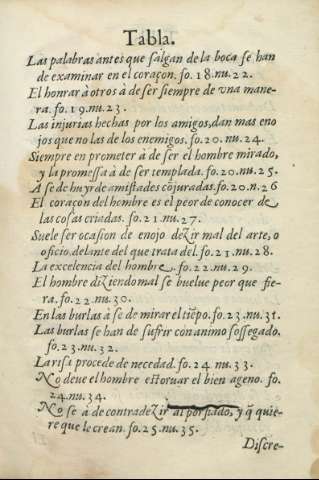 Tabla.
Las palabras antes que salgan de la boca se han
de examinar en el coraçon. fo. 18. nu. 22.
El honrar à otros à de ser siempre de vna mane-
ra. fo. 19. nu. 23.
Las injurias hechas por los amigos, dan mas eno
jos que no las de los enemigos. fo. 20. nu. 24.
Siempre en prometer à de ser el hombre mirado,
y la promessa à de ser templada. fo. 20. nu. 25.
A se de huyr de amistades cõjuradas. fo. 20. n. 26
El coraçon del hombre es el peor de conocer de
las cosas criadas. fo. 21. nu. 27.
Suele ser ocasion de enojo dezir mal del arte, o
oficio, delante del que trata del. fo. 21. nu. 28.
La excelencia del hombre. fo. 22. nu. 29.
El hombre diziendo mal se buelue peor que fie-
ra. fo. 22. nu. 30.
En las burlas à se de mirar el tiẽpo. fo. 23. nu. 31.
Las burlas se han de sufrir con animo sossegado.
fo. 23. nu. 32.
La risa procede de necedad. fo. 24. nu. 33.
No deue el hombre estoruar el bien ageno. fo.
24. nu. 34.
No se à de contradezir al porfiado, y q̃ quie-
re que le crean. fo. 25. nu. 35.
Discre-